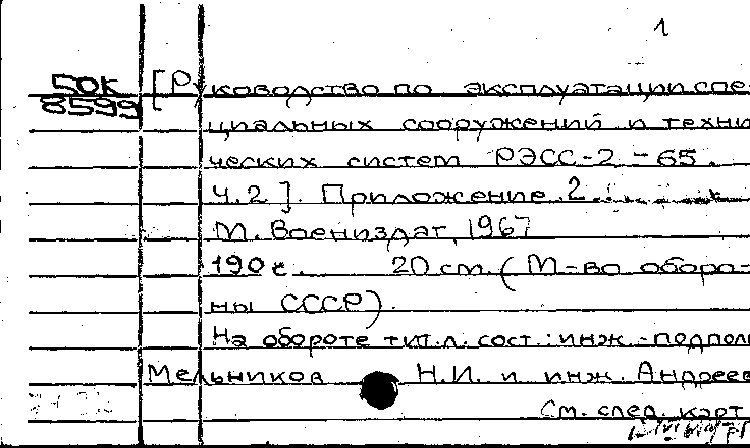 1
50К [Руководство по эксплуатации спе-
8599
циальных сооружений и техни
ческих систем РЭСС-2-65.
Ч.2]. Приложение 2
М. Воениздат, 1967
190с. 20 см. (М-во оборо-
ны СССР)
На обороте тит.л. сост.: инж.-подпол
Мельников Н.И. и инж. Андреев
См. след. карт